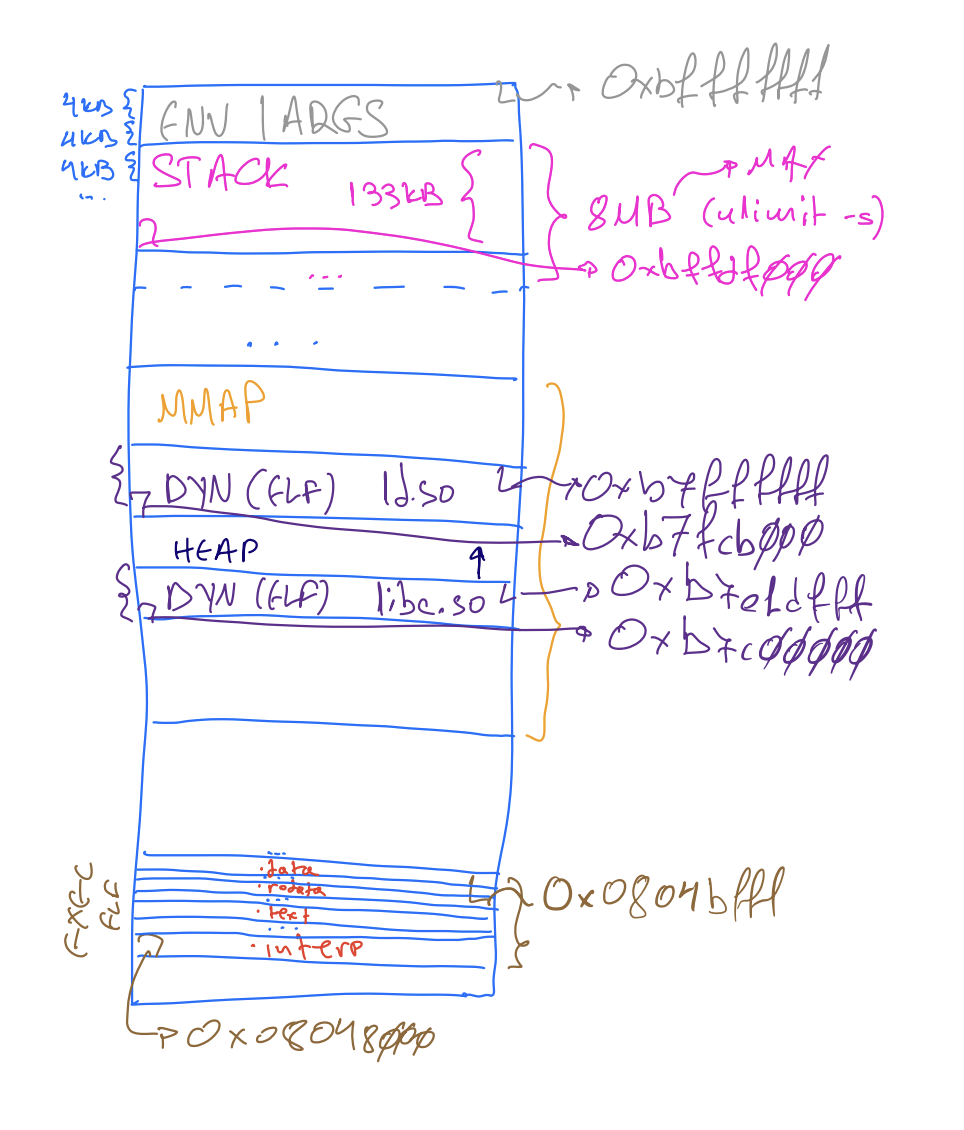 0xbfffffff
4kB
ENV | ARGS
4kB
4kB
...
STACK
133kB
MAX
8MB (ulimit -s)
0xbffdf000
...
...
MMAP
DYN (ELF) ld.so
0xb7ffffff
0xb7fcb000
HEAP
DYN (ELF) libc.so
0xb7e1dfff
0xb7c00000
...
.data
.rodata
...
.text
...
.interp
EXEC
ELF
0x0804bfff
0x08048000